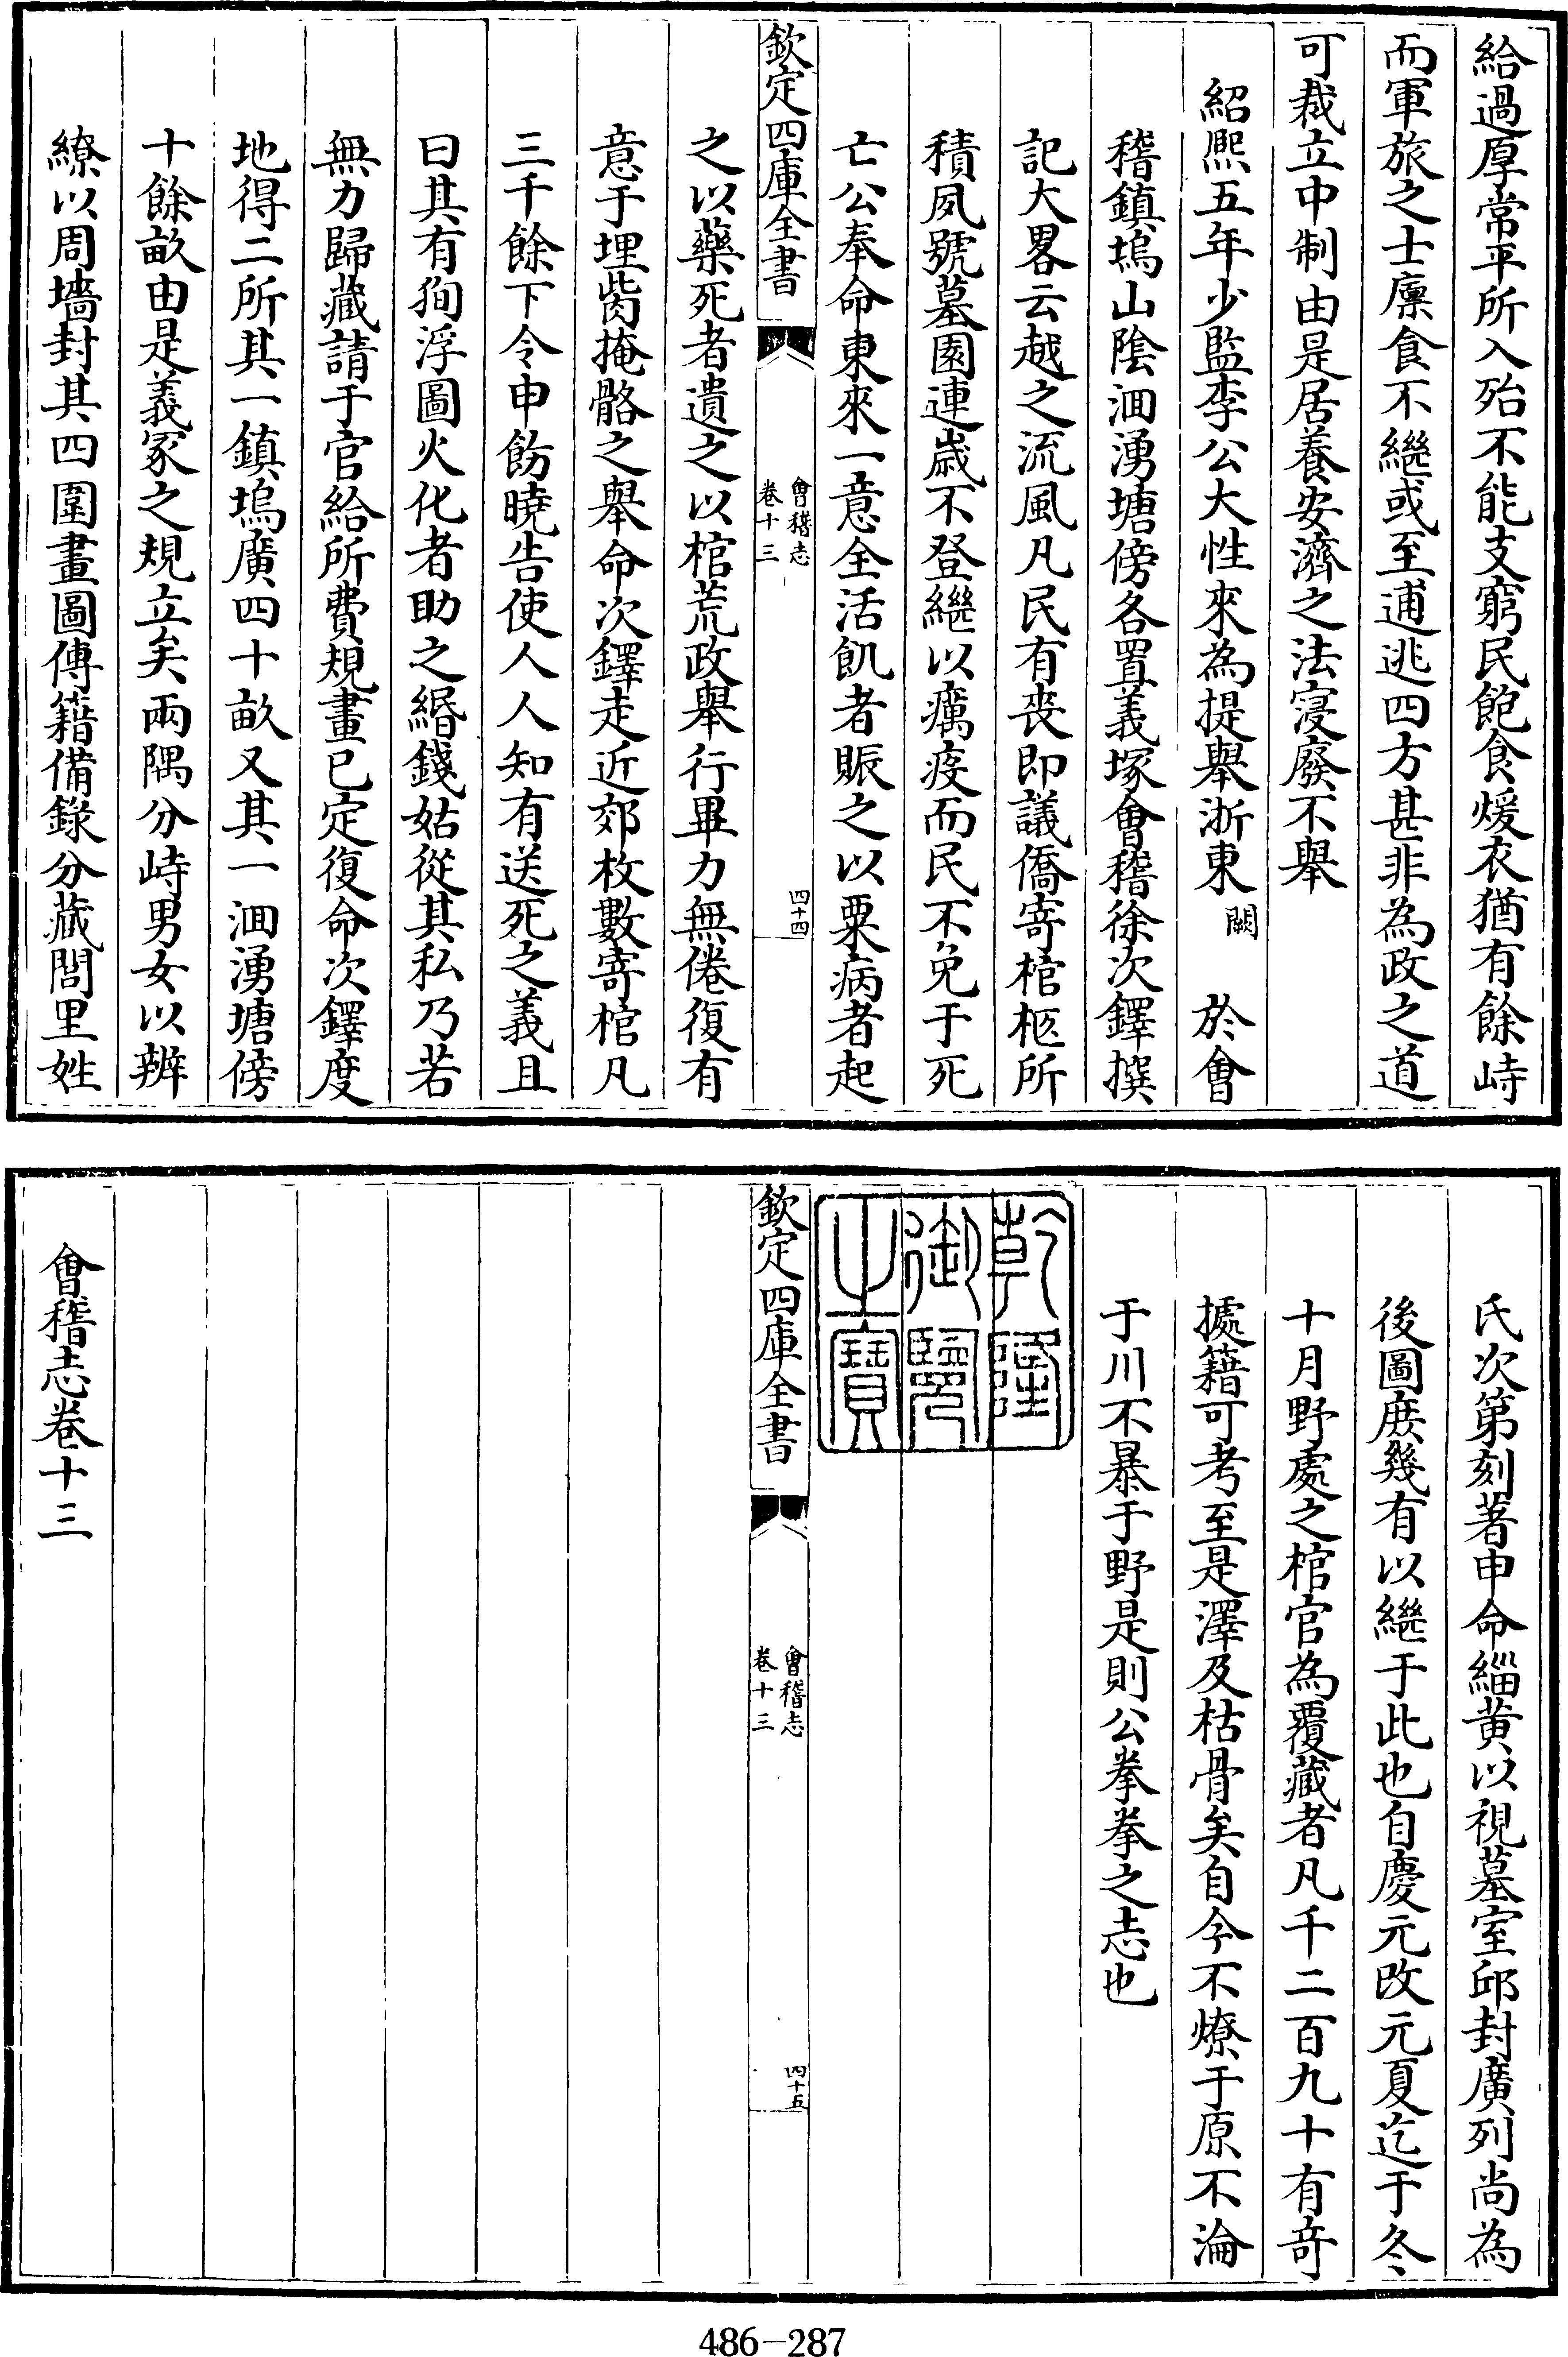 給過厚常平所入殆不能支窮民飽食煖衣猶有餘峙
而軍旅之士廪食不繼或至逋逃四方甚非為政之道
可裁立中制由是居養安濟之法寖廢不舉
紹熈五年少監李公大性來為提舉浙東闕於㑹
稽鎮塢山陰洄湧塘傍各置義塚㑹稽徐次鐸撰
記大畧云越之流風凡民有喪即議僑寄棺柩所
積夙號墓園連歲不登繼以癘疫而民不免于死
亡公奉命東來一意全活飢者賑之以粟病者起
欽定四庫全書
㑹稽志
卷十三
四十四
之以藥死者遺之以棺荒政舉行畢力無倦復有
意于埋胔掩骼之舉命次鐸走近郊枚數寄棺凡
三千餘下令申飭曉告使人人知有送死之義且
曰其有狥浮圖火化者助之緡錢姑從其私乃若
無力歸藏請于官給所費規畫已定復命次鐸度
地得二所其一鎮塢廣四十畝又其一洄湧塘傍
十餘畝由是義冢之規立矣兩隅分峙男女以辨
繚以周墻封其四圍畫圖傳籍備錄分藏閭里姓
氏次第刻著申命緇黄以視墓室邱封廣列尚為
後圖庶幾有以繼于此也自慶元改元夏迄于冬
十月野處之棺官為覆藏者凡千二百九十有奇
據籍可考至是澤及枯骨矣自今不燎于原不淪
于川不暴于野是則公拳拳之志也
乾隆
御覽
之寶
欽定四庫全書
㑹稽志
卷十三
四十五
㑹稽志卷十三
486-287